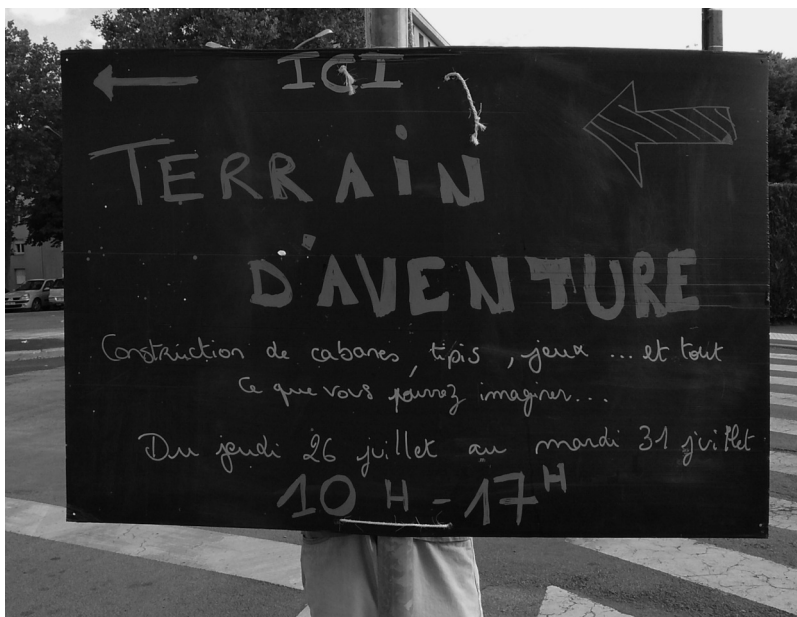 ICI
TERRAIN
D'AVENTURE
Construction de cabanes, tipis, jeux ... et tout
ce que vous pourrez imaginer...
Du jeudi 26 juillet au mardi 31 juillet
10 H - 17 H